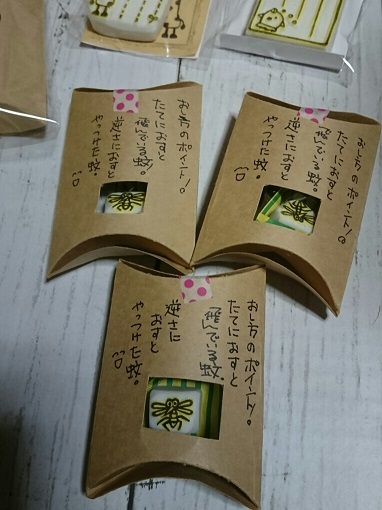 お し方のポイント!。
たてにおすと
飛んでいる蚊。
逆さにおすと
やっつけた蚊。
おし方のポイント!。
たてにおすと
飛んでいる蚊。
逆さにおすと
やっつけた蚊。
おし方のポイント。
たてにおすと
飛んでいる蚊。
逆さに
おすと
やっつけた蚊。